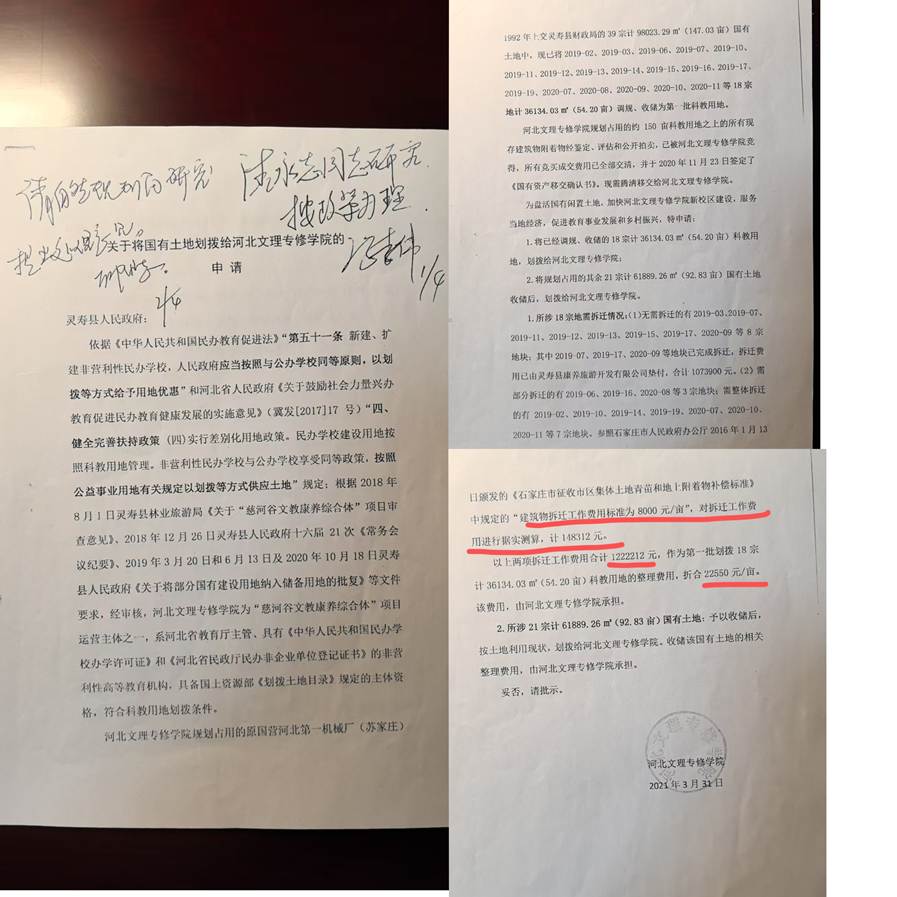 请自然规划局研究
提出处理意见。
2/4
请永志同志研究
按政策办理.
1/4
关于将国有土地划拨给河北文理专修学院的
申请
灵寿县人民政府：
依据《中华人民共和国民办教育促进法》“第五十一条 新建、扩
建非营利性民办学校，人民政府应当按照与公办学校同等原则，以划
拨等方式给予用地优惠”和河北省人民政府《关于鼓励社会力量兴办
教育促进民办教育健康发展的实施意见》（冀发[2017]17 号）“四、
健全完善扶持政策（四）实行差别化用地政策。民办学校建设用地按
照科教用地管理。非营利性民办学校与公办学校享受同等政策，按照
公益事业用地有关规定以划拨等方式供应土地”规定；根据 2018 年
8 月 1 日灵寿县林业旅游局《关于“慈河谷文教康养综合体”项目审
查意见》、2018 年 12 月 26 日灵寿县人民政府十六届 21 次《常务会
议纪要》、2019 年 3 月 20 日和 6 月 13 日及 2020 年 10 月 18 日灵寿
县人民政府《关于将部分国有建设用地纳入储备用地的批复》等文件
要求，经审核，河北文理专修学院为“慈河谷文教康养综合体”项目
运营主体之一，系河北省教育厅主管、具有《中华人民共和国民办学
校办学许可证》和《河北省民政厅民办非企业单位登记证书》的非营
利性高等教育机构，具备国土资源部《划拨土地目录》规定的主体资
格，符合科教用地划拨条件。
河北文理专修学院规划占用的原国营河北第一机械厂（苏家庄）
1992 年上交灵寿县财政局的 39 宗计 98023.29 ㎡（147.03 亩）国有
土地中，现已将 2019-02、2019-03、2019-06、2019-07、2019-10、
2019-11、2019-12、2019-13、2019-14、2019-15、2019-16、2019-17、
2019-19、2020-07、2020-08、2020-09、2020-10、2020-11 等 18 宗
地计 36134.03 ㎡（54.20 亩）调规、收储为第一批科教用地。
河北文理专修学院规划占用的约 150 亩科教用地之上的所有现
存建筑物附着物经鉴定、评估和公开拍卖，已被河北文理专修学院竞
得，所有竞买成交费用已全部交清，并于 2020 年 11 月 23 日签定了
《国有资产移交确认书》。现需腾清移交给河北文理专修学院。
为盘活国有闲置土地、加快河北文理专修学院新校区建设，服务
当地经济，促进教育事业发展和乡村振兴，特申请：
1.将已经调规、收储的 18 宗计 36134.03 ㎡（54.20 亩）科教用
地，划拨给河北文理专修学院；
2.将规划占用的其余 21 宗计 61889.26 ㎡（92.83 亩）国有土地
收储后，划拨给河北文理专修学院。
1.所涉 18 宗地需拆迁情况：(1)无需拆迁的有 2019-03、2019-07、
2019-11、2019-12、2019-13、2019-15、2019-17、2020-09 等 8 宗
地块；其中 2019-07、2019-17、2020-09 等地块已完成拆迁，拆迁费
用已由灵寿县康养旅游开发有限公司垫付，合计 1073900 元。(2) 需
部分拆迁的有 2019-06、2019-16、2020-08 等 3 宗地块；需整体拆迁
的有 2019-02、2019-10、2019-14、2019-19、2020-07、2020-10、
2020-11 等 7 宗地块。参照石家庄市人民政府办公厅 2016 年 1 月 13
日颁发的《石家庄市征收市区集体土地青苗和地上附着物补偿标准》
中规定的“建筑物拆迁工作费用标准为 8000 元/亩”，对拆迁工作费
用进行据实测算，计 148312 元。
以上两项拆迁工作费用合计 1222212 元，作为第一批划拨 18 宗
计 36134.03 ㎡（54.20 亩）科教用地的整理费用，折合 22550 元/亩。
该费用，由河北文理专修学院承担。
2.所涉 21 宗计 61889.26 ㎡（92.83 亩）国有土地：予以收储后，
按土地利用现状，划拨给河北文理专修学院。收储该国有土地的相关
整理费用，由河北文理专修学院承担。
妥否，请批示。
河北文理专修学院
2021 年 3 月 31 日